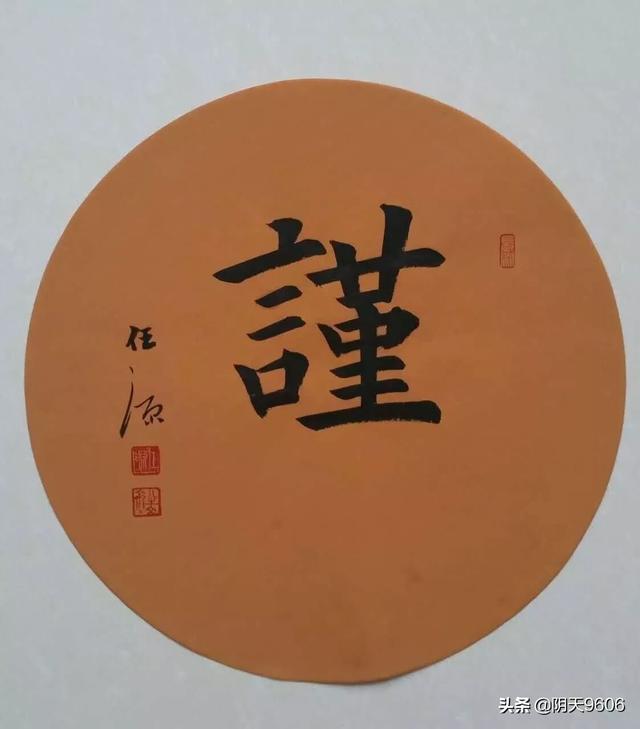 謹
任源
头条 @阴天9606